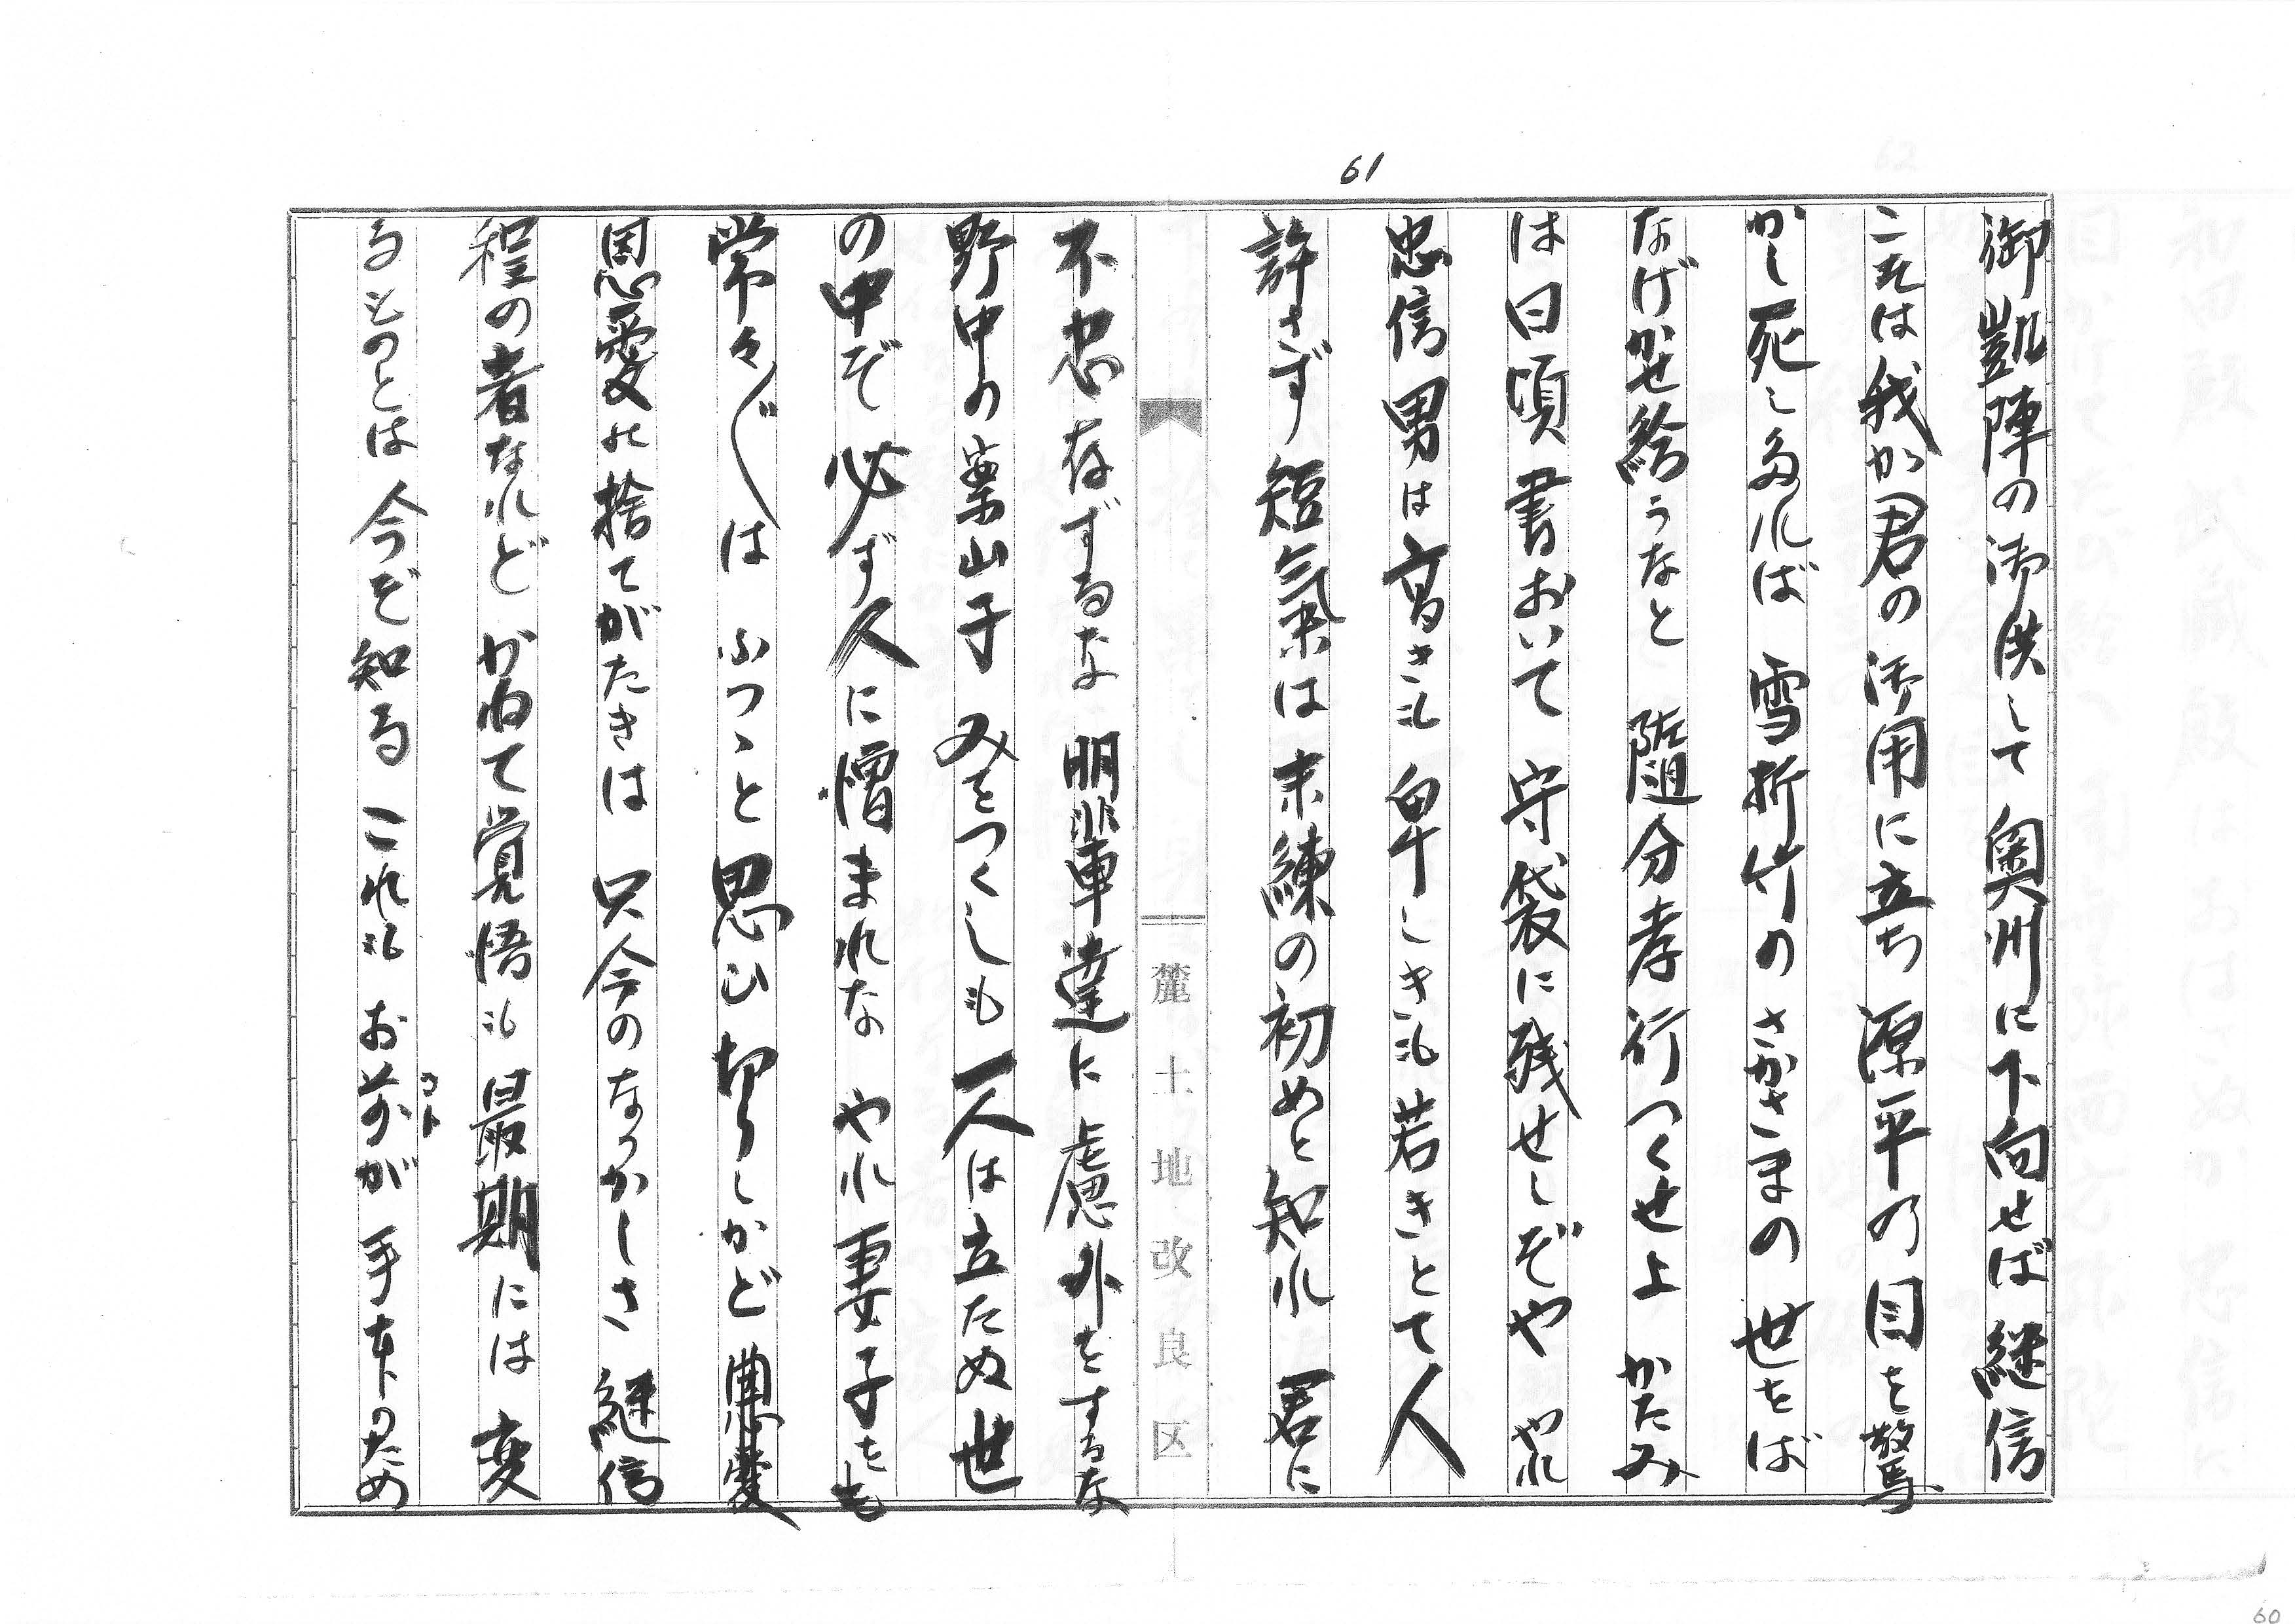 61
御凱陣の御供して奥州に下向せば継信
こそは我か君の御用に立ち源平の目を驚
かし死したれば 雪折竹のさかさまの 世をば
なげかせ給うなと 随分孝行つくせよ かたみ
は日頃書おいて 守袋に残せしぞや やれ
忠信男は高きも卑しきも若きとて人
許さず短氣は未練の初めと知れ 君に
麓土地改良区
不忠存ずるな 朋輩達に慮外をするな
野中の案山子 みをつくしも一人は立たぬ世
の中ぞ必ず人に憎まれな やれ妻子をも
常々〲は ふつゝと思ひ切りしかど 恩愛
恩愛の捨てがたきは 只今のなつかしさ 継信
程の者なれど かねて覚悟も最期には 変
るものとは今ぞ知る これもお前が手本のため
コト
60